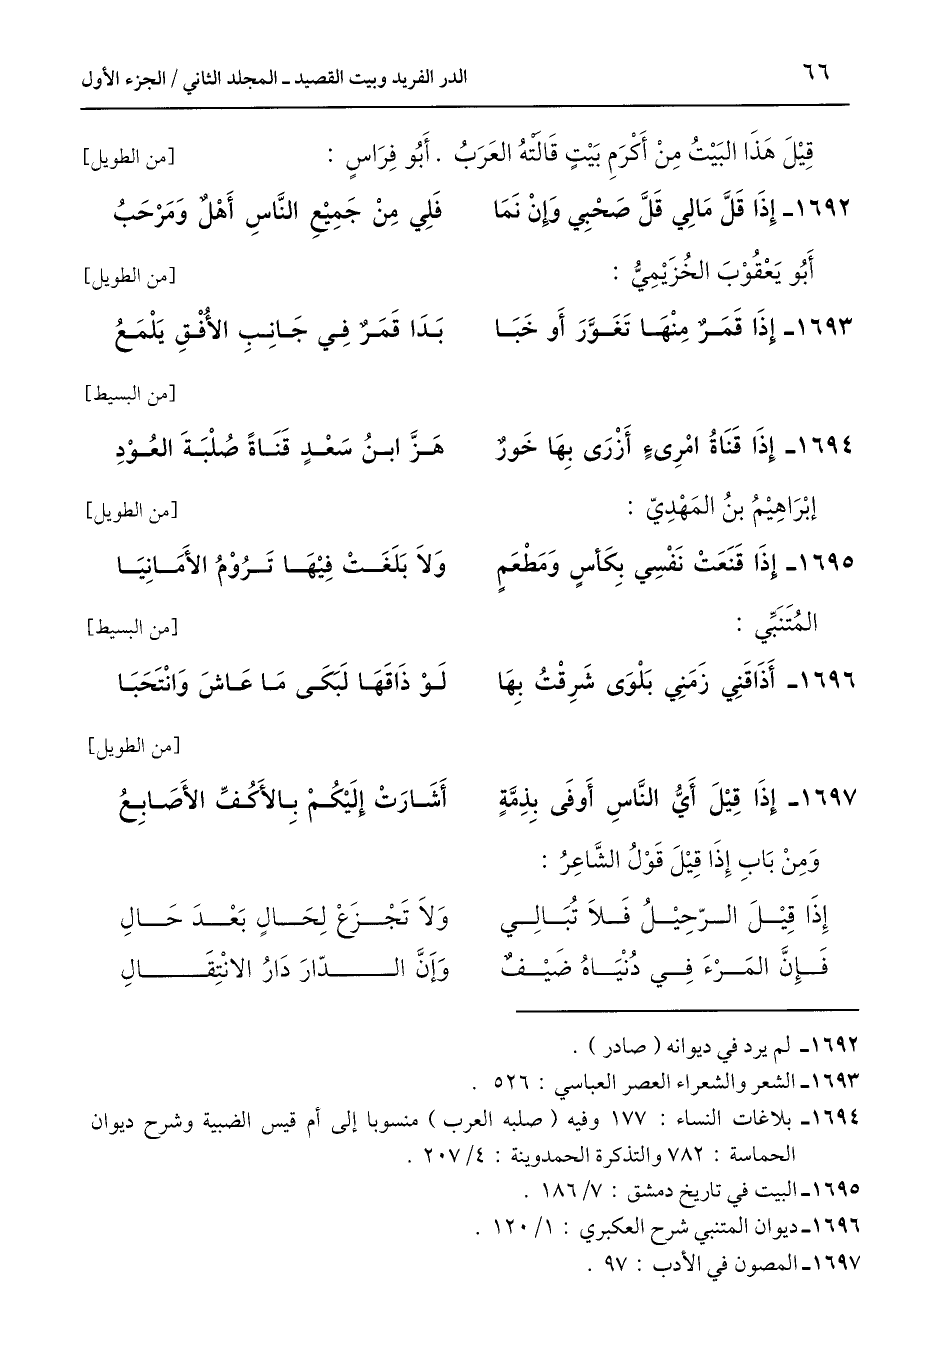 ٦٦ الدر الفريد وبيت القصيد ـ المجلد الثاني / الجزء الأول
قِيْلَ هَذَا البَيْتُ مِنْ أَكْرَمِ بَيْتٍ قَالَتْهُ العَرَبُ . أَبُو فِرَاسٍ : [من الطويل]
١٦٩٢ـ إِذَا قَلَّ مَالِي قَلَّ صَحْبِي وَإِنْ نَمَا فَلِي مِنْ جَمِيْعِ النَّاسِ أَهْلٌ وَمَرْحَبُ
أَبُو يَعْقُوْبَ الخُزَيْمِيُّ : [من الطويل]
١٦٩٣ـ إِذَا قَمَرٌ مِنْهَا تَغَوَّرَ أَو خَبَا بَدَا قَمَرٌ فِي جَانِبِ الأُفْقِ يَلْمَعُ
[من البسيط]
١٦٩٤ـ إِذَا قَنَاةُ امْرِىءٍ أَزْرَى بِهَا خَورٌ هَزَّ ابنُ سَعْدٍ قَنَاةً صُلْبَةَ العُوْدِ
إِبْرَاهِيْمُ بنُ المَهْدِيّ : [من الطويل]
١٦٩٥ـ إِذَا قَنَعَتْ نَفْسِي بِكَأسٍ وَمَطْعَمٍ وَلاَ بَلَغَتْ فِيْهَا تَرُوْمُ الأَمَانِيَا
المُتَنَبِّي : [من البسيط]
١٦٩٦ـ أَذَاقَنِي زَمَنِي بَلْوَى شَرِقْتُ بِهَا لَوْ ذَاقَهَا لَبَكَى مَا عَاشَ وَانْتَحَبَا
[من الطويل]
١٦٩٧ـ إِذَا قِيْلَ أَيُّ النَّاسِ أَوفَى بِذِمَّةٍ أَشَارَتْ إِلَيْكُمْ بِالأَكُفِّ الأَصَابِعُ
وَمِنْ بَابِ إِذَا قِيْلَ قَوْلُ الشَّاعِرُ :
إِذَا قِيْلَ الرّحِيْلُ فَلاَ تُبَالِي وَلاَ تَجْزَعْ لِحَالٍ بَعْدَ حَالِ
فَإِنَّ المَرْءَ فِي دُنْيَاهُ ضَيْفٌ وَإَنَّ الدّارَ دَارُ الانْتِقَالِ
١٦٩٢ـ لم يرد في ديوانه ( صادر ) .
١٦٩٣ـ الشعر والشعراء العصر العباسي : ٥٢٦ .
١٦٩٤ـ بلاغات النساء : ١٧٧ وفيه ( صلبه العرب ) منسوبا إلى أم قيس الضبية وشرح ديوان
الحماسة : ٧٨٢ والتذكرة الحمدوينة : ٤/ ٢٠٧ .
١٦٩٥ـ البيت في تاريخ دمشق : ٧/ ١٨٦ .
١٦٩٦ـ ديوان المتنبي شرح العكبري : ١/ ١٢٠ .
١٦٩٧ـ المصون في الأدب : ٩٧ .